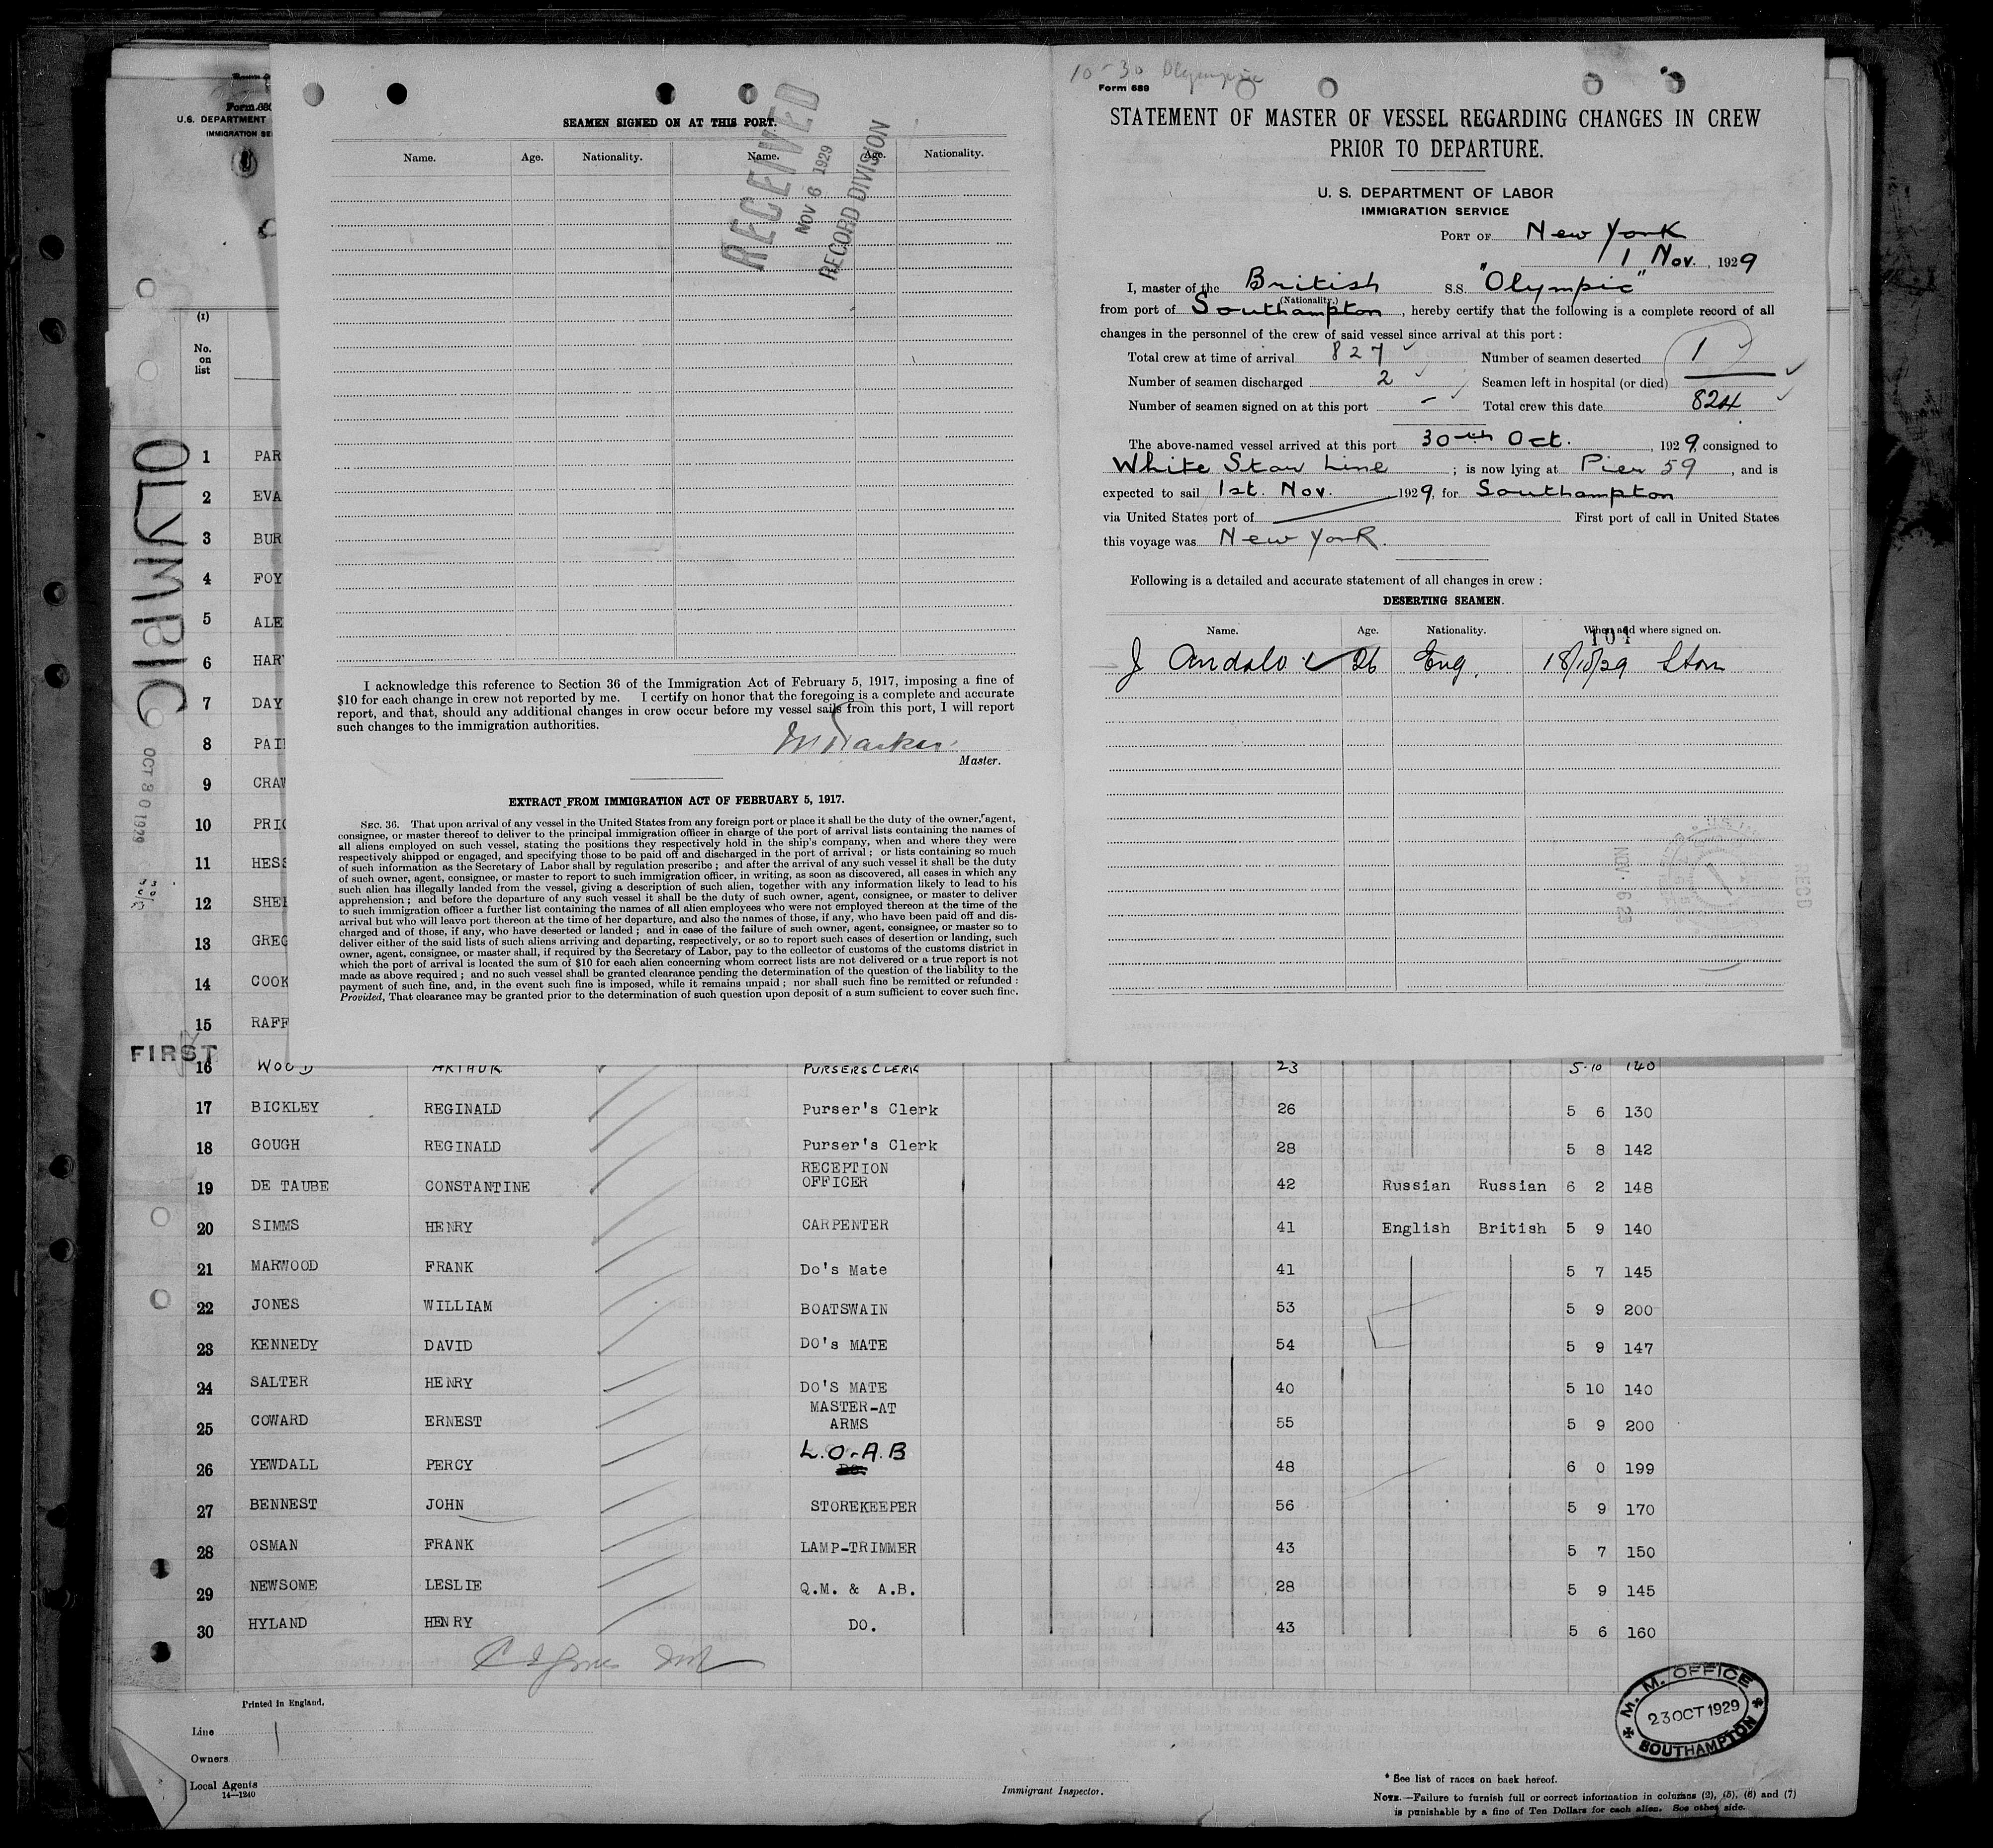 Form 680
U.S. DEPARTMENT
IMMIGRATION SE
(1)
No.
on
list
OLYMPIC
OCT 30 1929
FIRST
1 PAR
2 EVA
3 BUR
4 FOY
5 ALE
6 HAR
7 DAY
8 PAI
9 CRAW
10 PRI
11 HESS
12 SHE
13 GREG
14 COOK
15 RAFF
SEAMEN SIGNED ON AT THIS PORT.
Name. Age. Nationality. Name. Age. Nationality.
RECEIVED
NOV 6 1929
RECORD DIVISION
I acknowledge this reference to Section 36 of the Immigration Act of February 5, 1917, imposing a fine of
$10 for each change in crew not reported by me. I certify on honor that the foregoing is a complete and accurate
report, and that, should any additional changes in crew occur before my vessel sails from this port, I will report
such changes to the immigration authorities.
Master.
EXTRACT FROM IMMIGRATION ACT OF FEBRUARY 5, 1917.
SEC. 36. That upon arrival of any vessel in the United States from any foreign port or place it shall be the duty of the owner, agent,
consignee, or master thereof to deliver to the principal immigration officer in charge of the port of arrival lists containing the names of
all aliens employed on such vessel, stating the positions they respectively hold in the ship's company, when and where they were
respectively shipped or engaged, and specifying those to be paid off and discharged in the port of arrival; or lists containing so much
of such information as the Secretary of Labor shall by regulation prescribe; and after the arrival of any such vessel it shall be the duty
of such owner, agent, consignee, or master to report to such immigration officer, in writing, as soon as discovered, all cases in which any
such alien has illegally landed from the vessel, giving a description of such alien, together with any information likely to lead to his
apprehension; and before the departure of any such vessel it shall be the duty of such owner, agent, consignee, or master to deliver
to such immigration officer a further list containing the names of all alien employees who were not employed thereon at the time of the
arrival but who will leave port thereon at the time of her departure, and also the names of those, if any, who have been paid off and dis-
charged and of those, if any, who have deserted or landed; and in case of the failure of such owner, agent, consignee, or master so to
deliver either of the said lists of such aliens arriving and departing, respectively, or so to report such cases of desertion or landing, such
owner, agent, consignee, or master shall, if required by the Secretary of Labor, pay to the collector of customs of the customs district in
which the port of arrival is located the sum of $10 for each alien concerning whom correct lists are not delivered or a true report is not
made as above required; and no such vessel shall be granted clearance pending the determination of the question of the liability to the
payment of such fine, and, in the event such fine is imposed, while it remains unpaid; nor shall such fine be remitted or refunded:
Provided, That clearance may be granted prior to the determination of such question upon deposit of a sum sufficient to cover such fine.
10-30 Olympic
Form 689
STATEMENT OF MASTER OF VESSEL REGARDING CHANGES IN CREW
PRIOR TO DEPARTURE.
U. S. DEPARTMENT OF LABOR
IMMIGRATION SERVICE
PORT OF New York
1 Nov. , 1929
I, master of the British S.S. "Olympic"
(Nationality.)
from port of Southampton , hereby certify that the following is a complete record of all
changes in the personnel of the crew of said vessel since arrival at this port:
Total crew at time of arrival 827 Number of seamen deserted 1
Number of seamen discharged 2 Seamen left in hospital (or died)
Number of seamen signed on at this port - Total crew this date 824
The above-named vessel arrived at this port 30th Oct. , 1929, consigned to
White Star Line ; is now lying at Pier 59 , and is
expected to sail 1st. Nov. 1929, for Southampton
via United States port of First port of call in United States
this voyage was New York.
Following is a detailed and accurate statement of all changes in crew:
DESERTING SEAMEN.
Name. Age. Nationality. When and where signed on.
101
J Andalo 26 Eng. 18/10/29 Ston
NOV 6 29
RECD
16 WOOD ARTHUR PURSERS CLERK 23 5-10 140
17 BICKLEY REGINALD Purser's Clerk 26 5 6 130
18 GOUGH REGINALD Purser's Clerk 28 5 8 142
19 DE TAUBE CONSTANTINE RECEPTION OFFICER 42 Russian Russian 6 2 148
20 SIMMS HENRY CARPENTER 41 English British 5 9 140
21 MARWOOD FRANK Do's Mate 41 5 7 145
22 JONES WILLIAM BOATSWAIN 53 5 9 200
23 KENNEDY DAVID DO's MATE 54 5 9 147
24 SALTER HENRY DO'S MATE 40 5 10 140
25 COWARD ERNEST MASTER-AT ARMS 55 5 9 200
26 YEWDALL PERCY L.O-A.B 48 6 0 199
27 BENNEST JOHN STOREKEEPER 56 5 9 170
28 OSMAN FRANK LAMP-TRIMMER 43 5 7 150
29 NEWSOME LESLIE Q.M. & A.B. 28 5 9 145
30 HYLAND HENRY DO. 43 5 6 160
Printed in England.
Line
Owners
Local Agents
14—1240
Immigrant Inspector.
M. M. OFFICE
23 OCT 1929
SOUTHAMPTON
* See list of races on back hereof.
NOTE.—Failure to furnish full or correct information in columns (2), (5), (6) and (7)
is punishable by a fine of Ten Dollars for each alien. See other side.